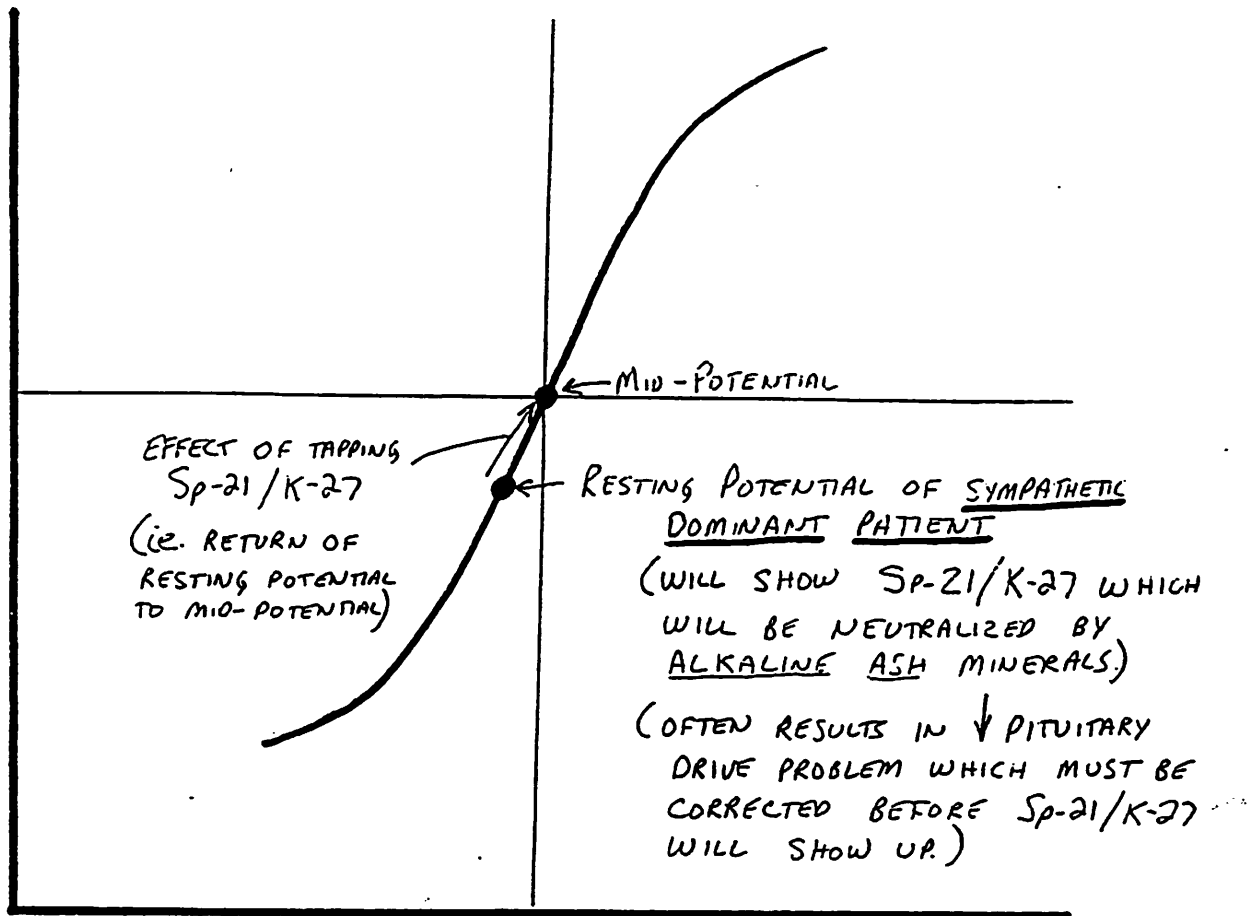 MID-POTENTIAL
EFFECT OF TAPPING
Sp-21/K-27
(i.e. RETURN OF
RESTING POTENTIAL
TO MID-POTENTIAL)
RESTING POTENTIAL OF SYMPATHETIC
DOMINANT PATIENT
(WILL SHOW Sp-21/K-27 WHICH
WILL BE NEUTRALIZED BY
ALKALINE ASH MINERALS.)
(OFTEN RESULTS IN ↓ PITUITARY
DRIVE PROBLEM WHICH MUST BE
CORRECTED BEFORE Sp-21/K-27
WILL SHOW UP.)